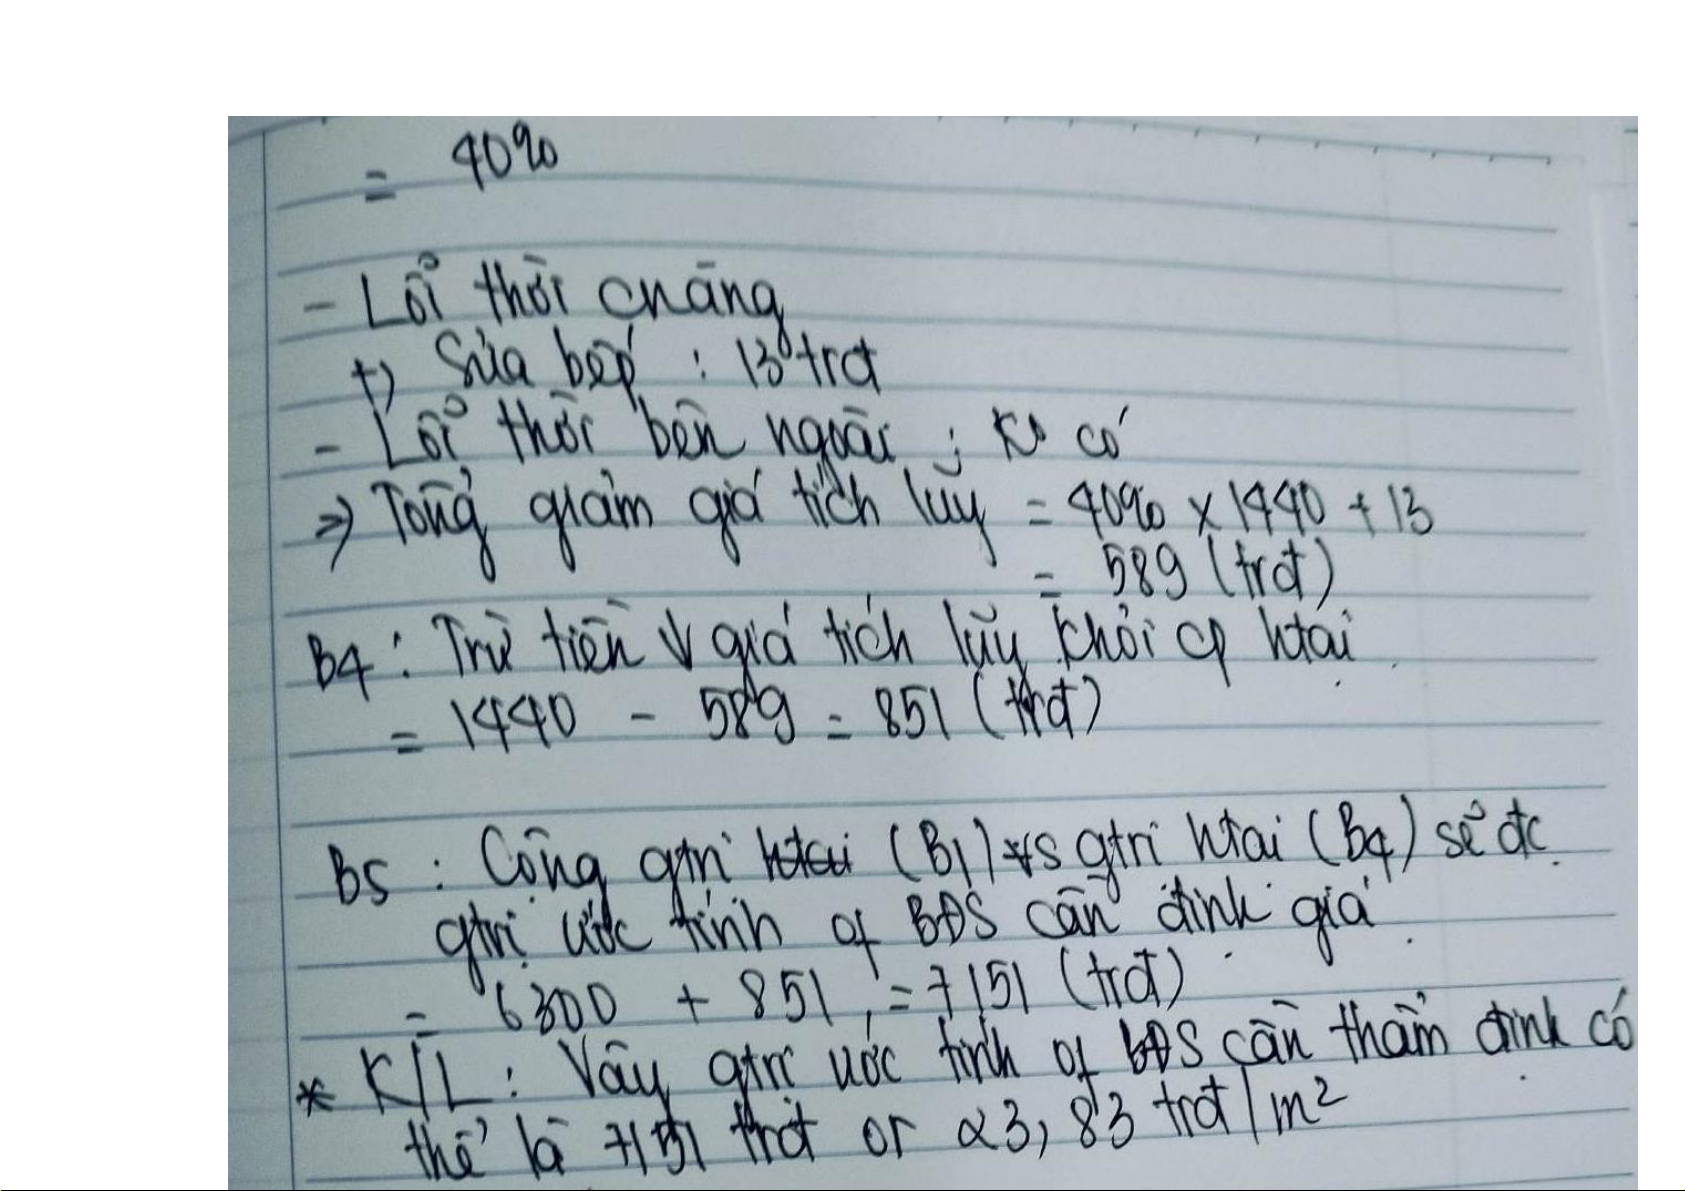 = 40%
- Lỗi thời cnăng
+) Sửa bếp : 13 trđ
- Lỗi thời bên ngoài : Ko có
=> Tổng giảm giá tích lũy = 40% x 1440 + 13
= 589 (trđ)
B4 : Trừ tiền ↓ giá tích lũy khỏi cp htại
= 1440 - 589 = 851 (trđ)
B5 : Cộng gtrị htại (B1) vs gtrị htại (B4) sẽ đc
gtrị ước tính of BĐS cần định giá
= 6300 + 851 = 7151 (trđ)
* K/L : Vậy gtrị ước tính of BĐS cần thẩm định có
thể là 7151 trđ or 23,83 trđ/m²